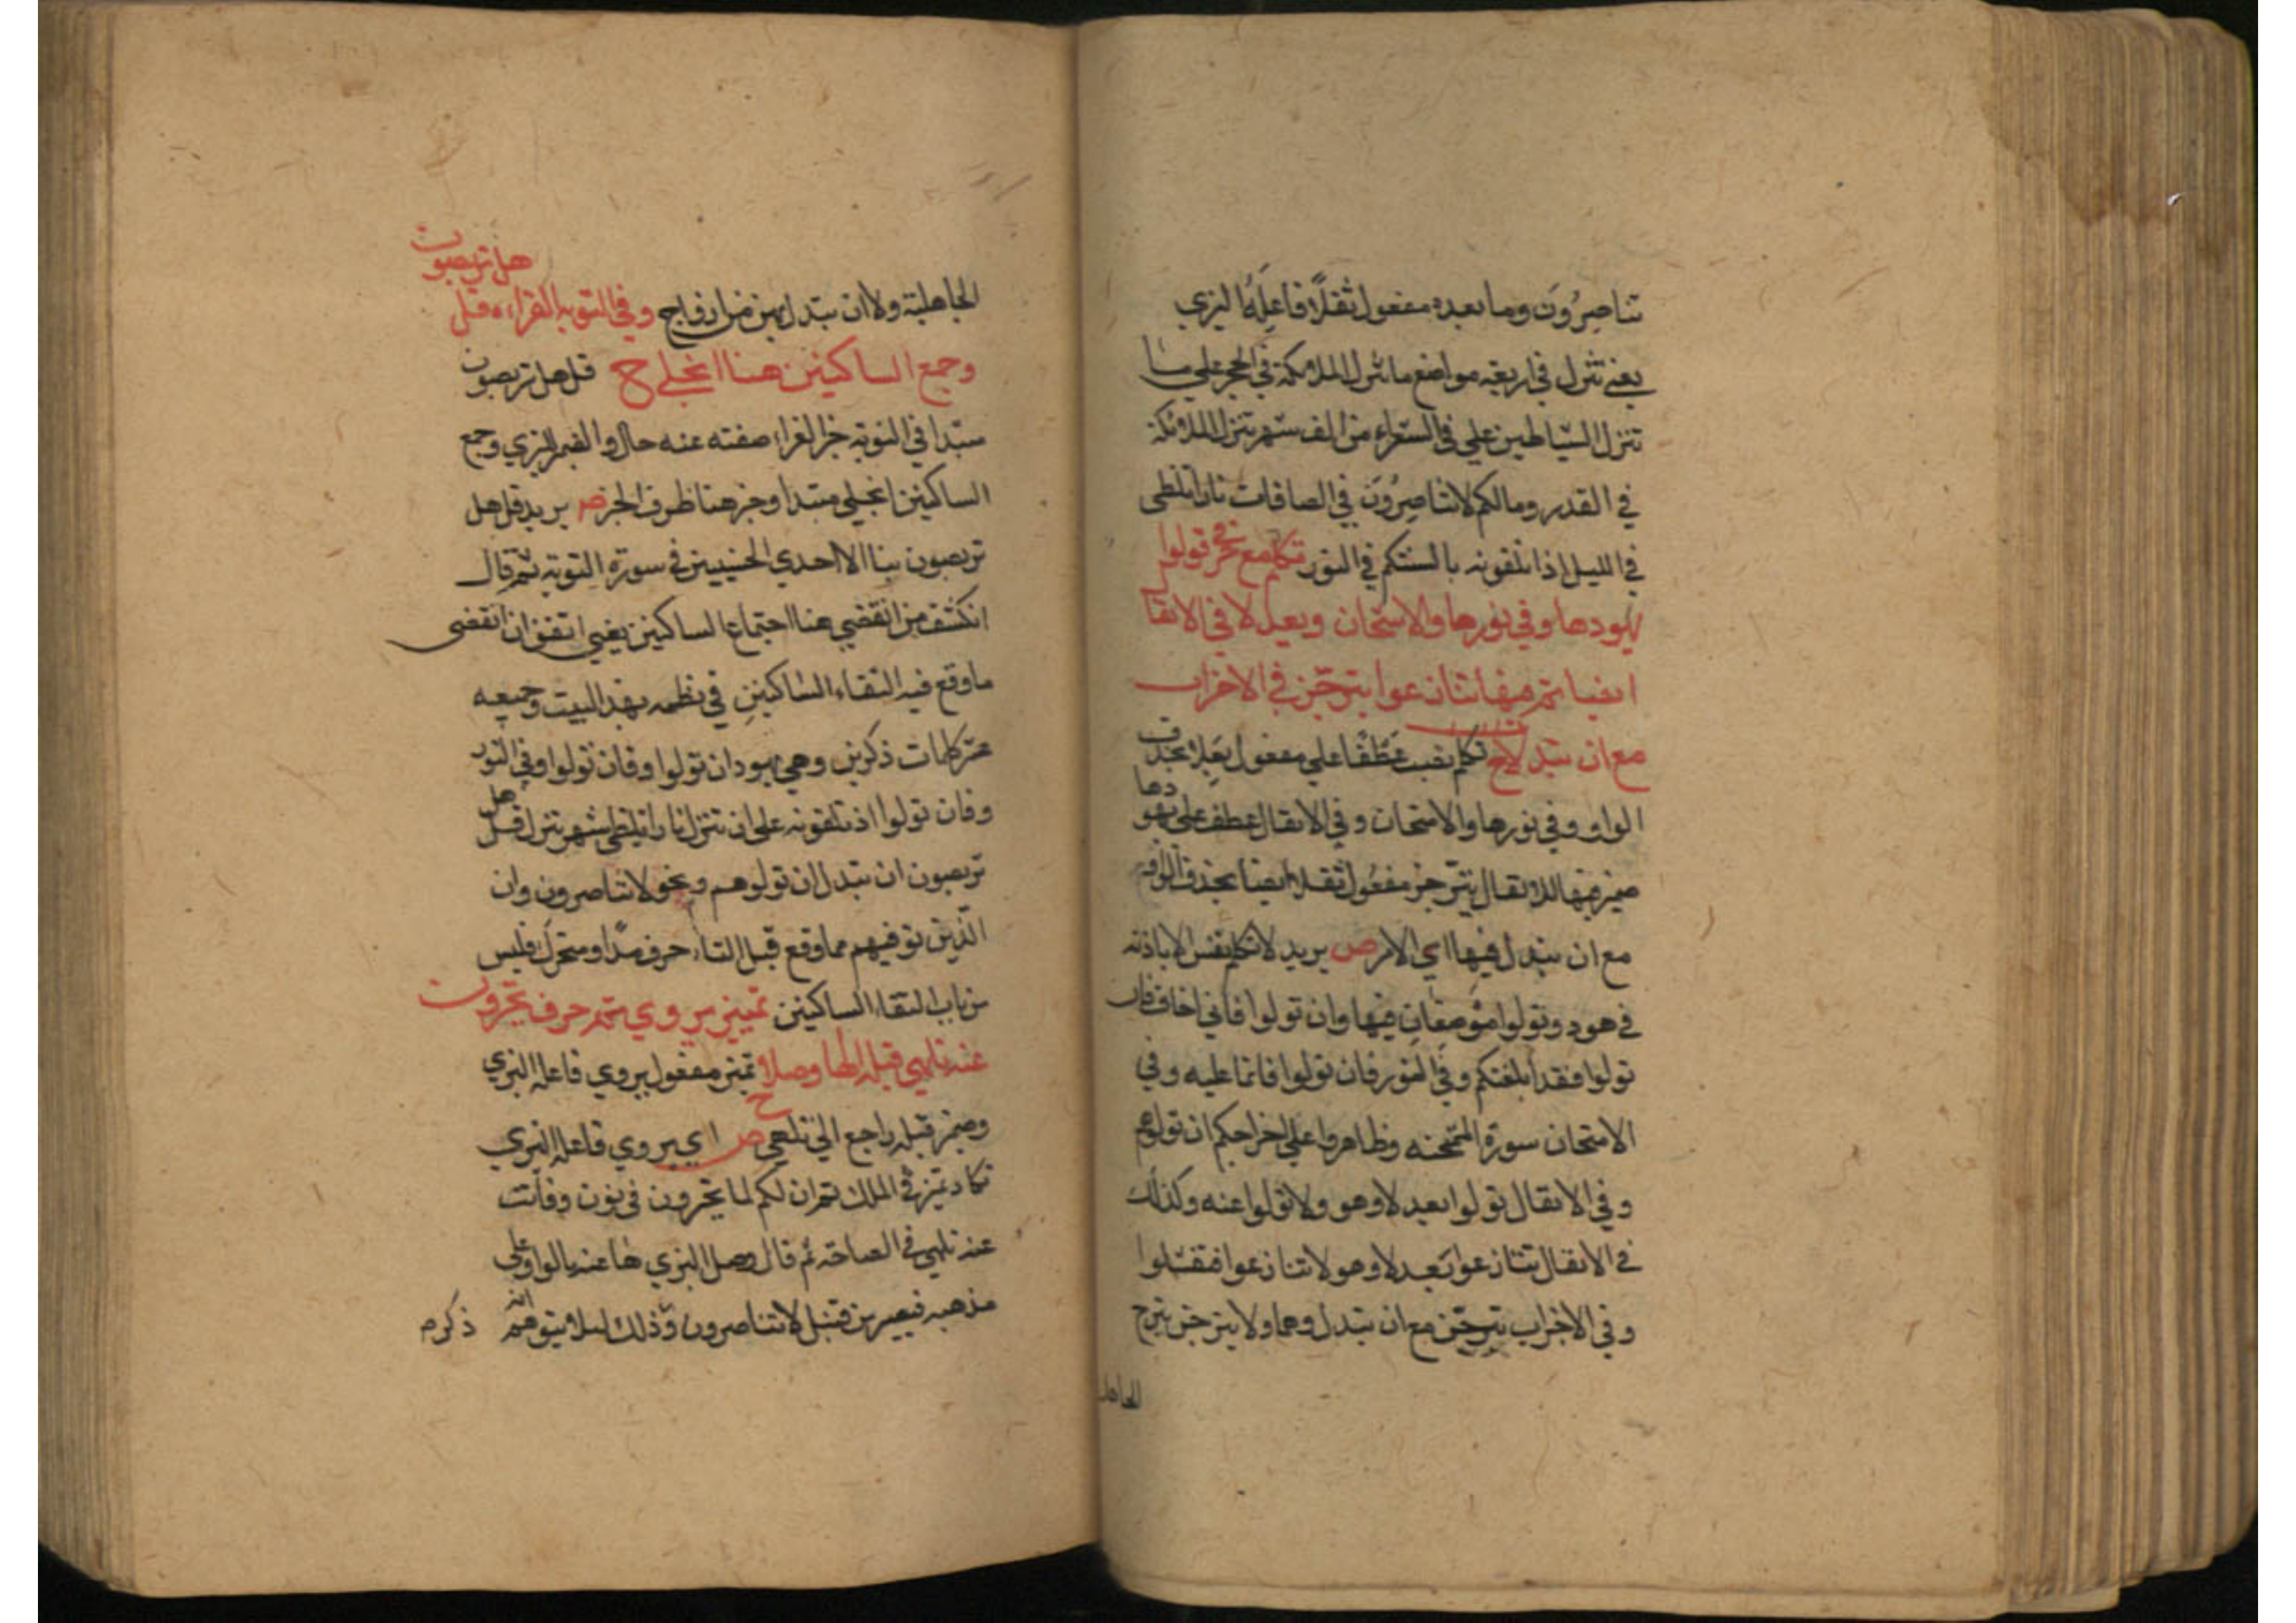 تناصرُونَ وما بعده مفعول ثقلًا فاعلهُ البزي
يعني تنزل في اربعة مواضع ما تنزل الملائكة في الحجر علي من
تنزل الشياطين علي في الشعراء من الف شهر تنزل الملائكة
في القدر ومالكم لا تناصرُونَ في الصافات نارا تلظى
في الليل اذ تلقونه بالسنتكم في النور تكلم مع حرفي تولوا
بهودها وفي نورها والامتحان وبعد لا في الانفال
ايضا ثم فيها تنازعوا تبرجن في الاحزاب
مع ان تبدل ح تكلم نصب عَطْفًا علي مفعول بحذف
الواو وفي نورها والامتحان وفي الانفال عطف علي بهودها
ضمير فيها للانفال تبرجن مفعُول ثقلا ايضا بحذف الواو
مع ان تبدل فيها اي الامر ص يريد لا تكلم نفس الا باذنه
في هود وتولوا موضعان فيها وان تولوا فاني اخاف فان
تولوا فقد ابلغتكم وفي النور فان تولوا فانما عليه وفي
الامتحان سورة الممتحنه وظاهروا علي اخراجكم ان تولوهم
وفي الانفال تولوا بعد لا وهو ولا تولوا عنه وكذلك
في الانفال تنازعوا بَعد لا وهو لا تنازعوا فتفشلوا
وفي الاحزاب تبرجن مع ان تبدل وهما ولا تبرجن تبرج
الجاهلية
هل تربصون
الجاهلية ولا ان تبدل بهن من ازواج وفي التوبه الغراء قل
وجمع الساكنين هنا انجلي ح قل هل تربصون
مبتدا في التوبة خبر الغراء صفته عنه حال والضمير للبزي وجمع
الساكنين انجلي مبتدا وخبر هنا ظرف الخبر ص يريد قل هل
تربصون بنا الا احدي الحسنيين في سورة التوبة ثم قال
انكشف من انقضي هنا اجتماع الساكنين يعني اتفق ان انقضى
ما وقع فيه التقاء الساكنين في نظمه بهذا البيت وجميعه
عشر كلمات ذكرن وهي بهود ان تولوا وفان تولوا وفي النور
وفان تولوا اذ تلقونه علي ان تنزل نارا تلظى شهر تنزل قل هل
تربصون ان تبدل ان تولوهم ونحو لا تناصرون وان
الّذين توفيهم مما وقع قبل التاء حرف مدّ او متحرك فليس
من باب التقاء الساكنين تميز يروي ثم حرف تخيرون
عنه تلهي قبله الها وصلا ح تميز مفعول يروي فاعله البزي
وضمير قبله راجع الي تلهي ص اي يروي فاعله البزي
تكاد تميز في الملك ثم ان لكم لما تخيرون في نون وفانت
عنه تلهي في الصاخة ثم قال وصل البزي ها عنه بالواو علي
مذهبه فيصير من قبل لا تناصرون وذلك لئلا يتوهم انه ذكره